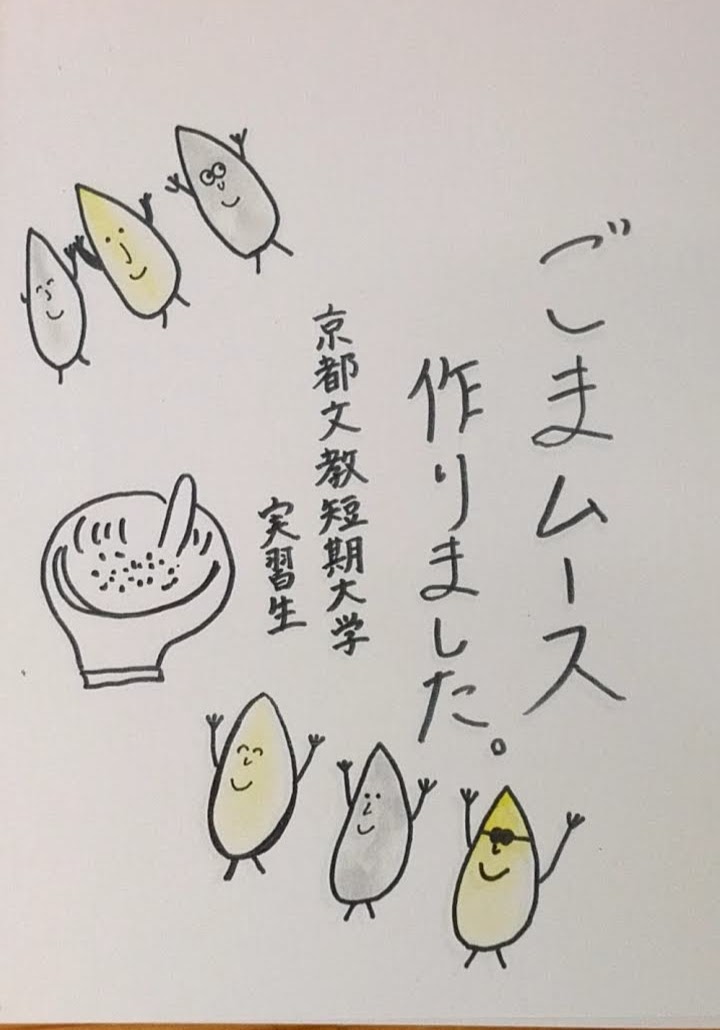 ごまムース
作りました。
京都文教短期大学
実習生